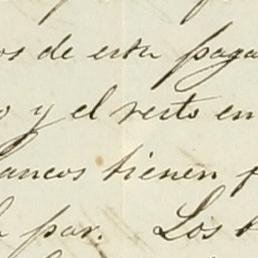 os de esta paga
o y el resto en
ancos tienen
la par. Los